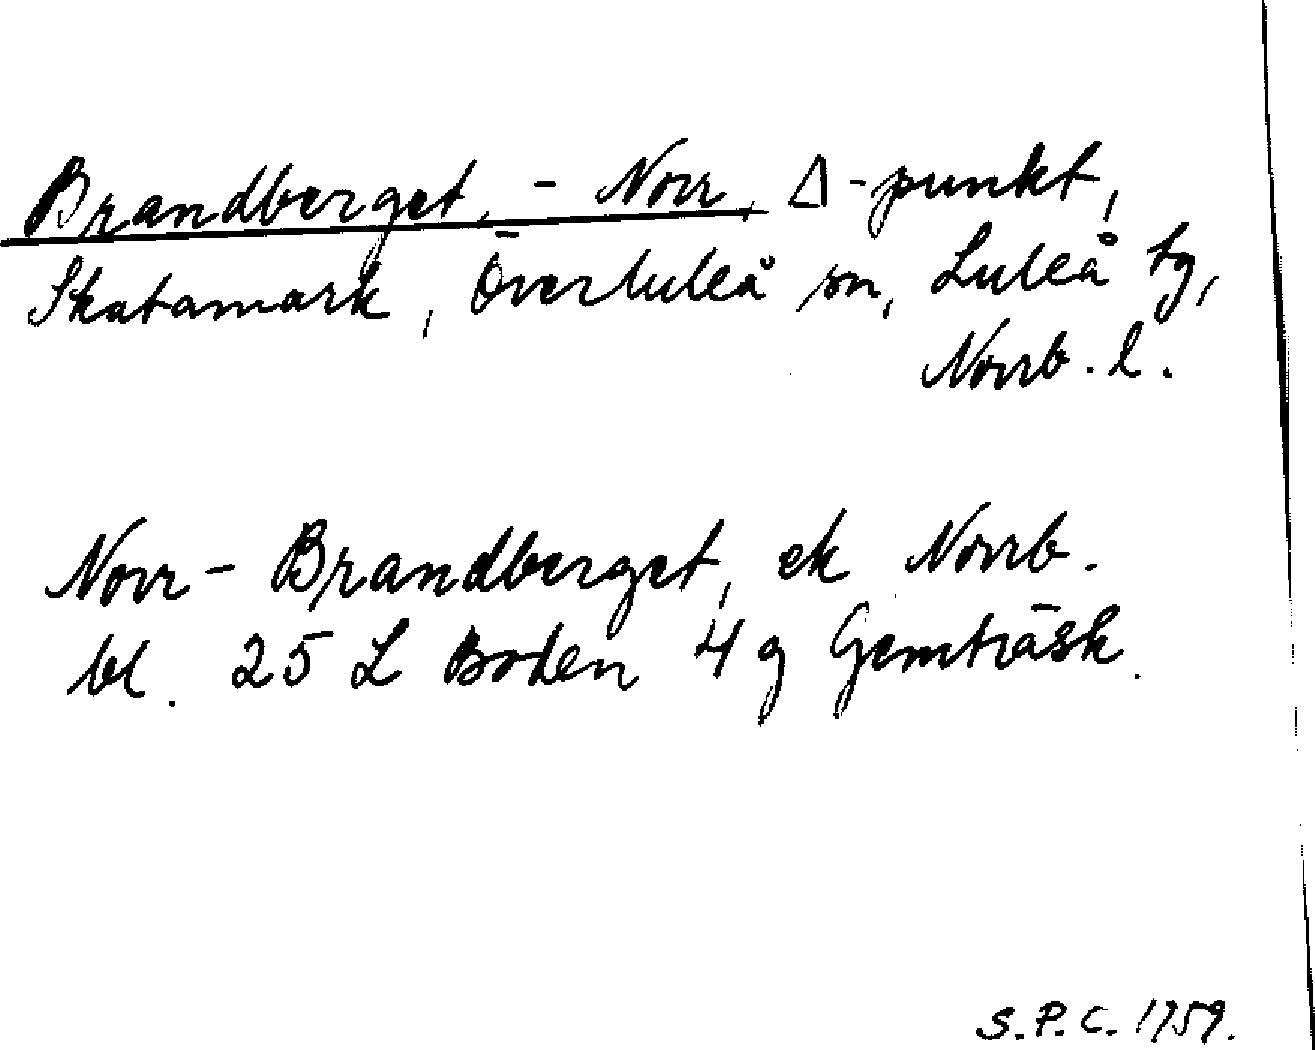 Brandberget, - Norr, Δ-punkt,
Skatamark, Överluleå sn, Luleå tg,
Norrb. l.
Norr-Brandberget, ek Norrb.
bl. 25 L Boden 4 g Gemträsk.
S.P.C. 1959.